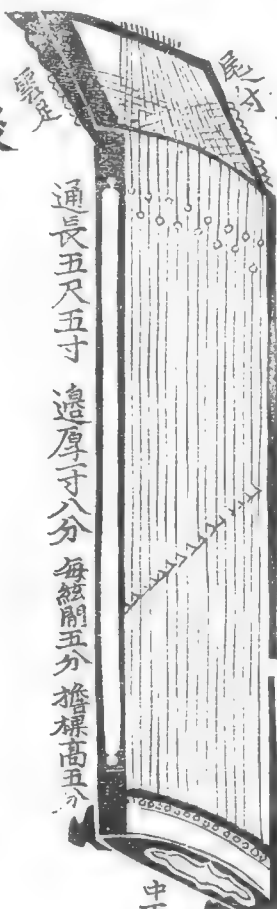 尾寸
雲足
通長五尺五寸 邉厚一寸八分 每絃間五分 擔樑高五分
中